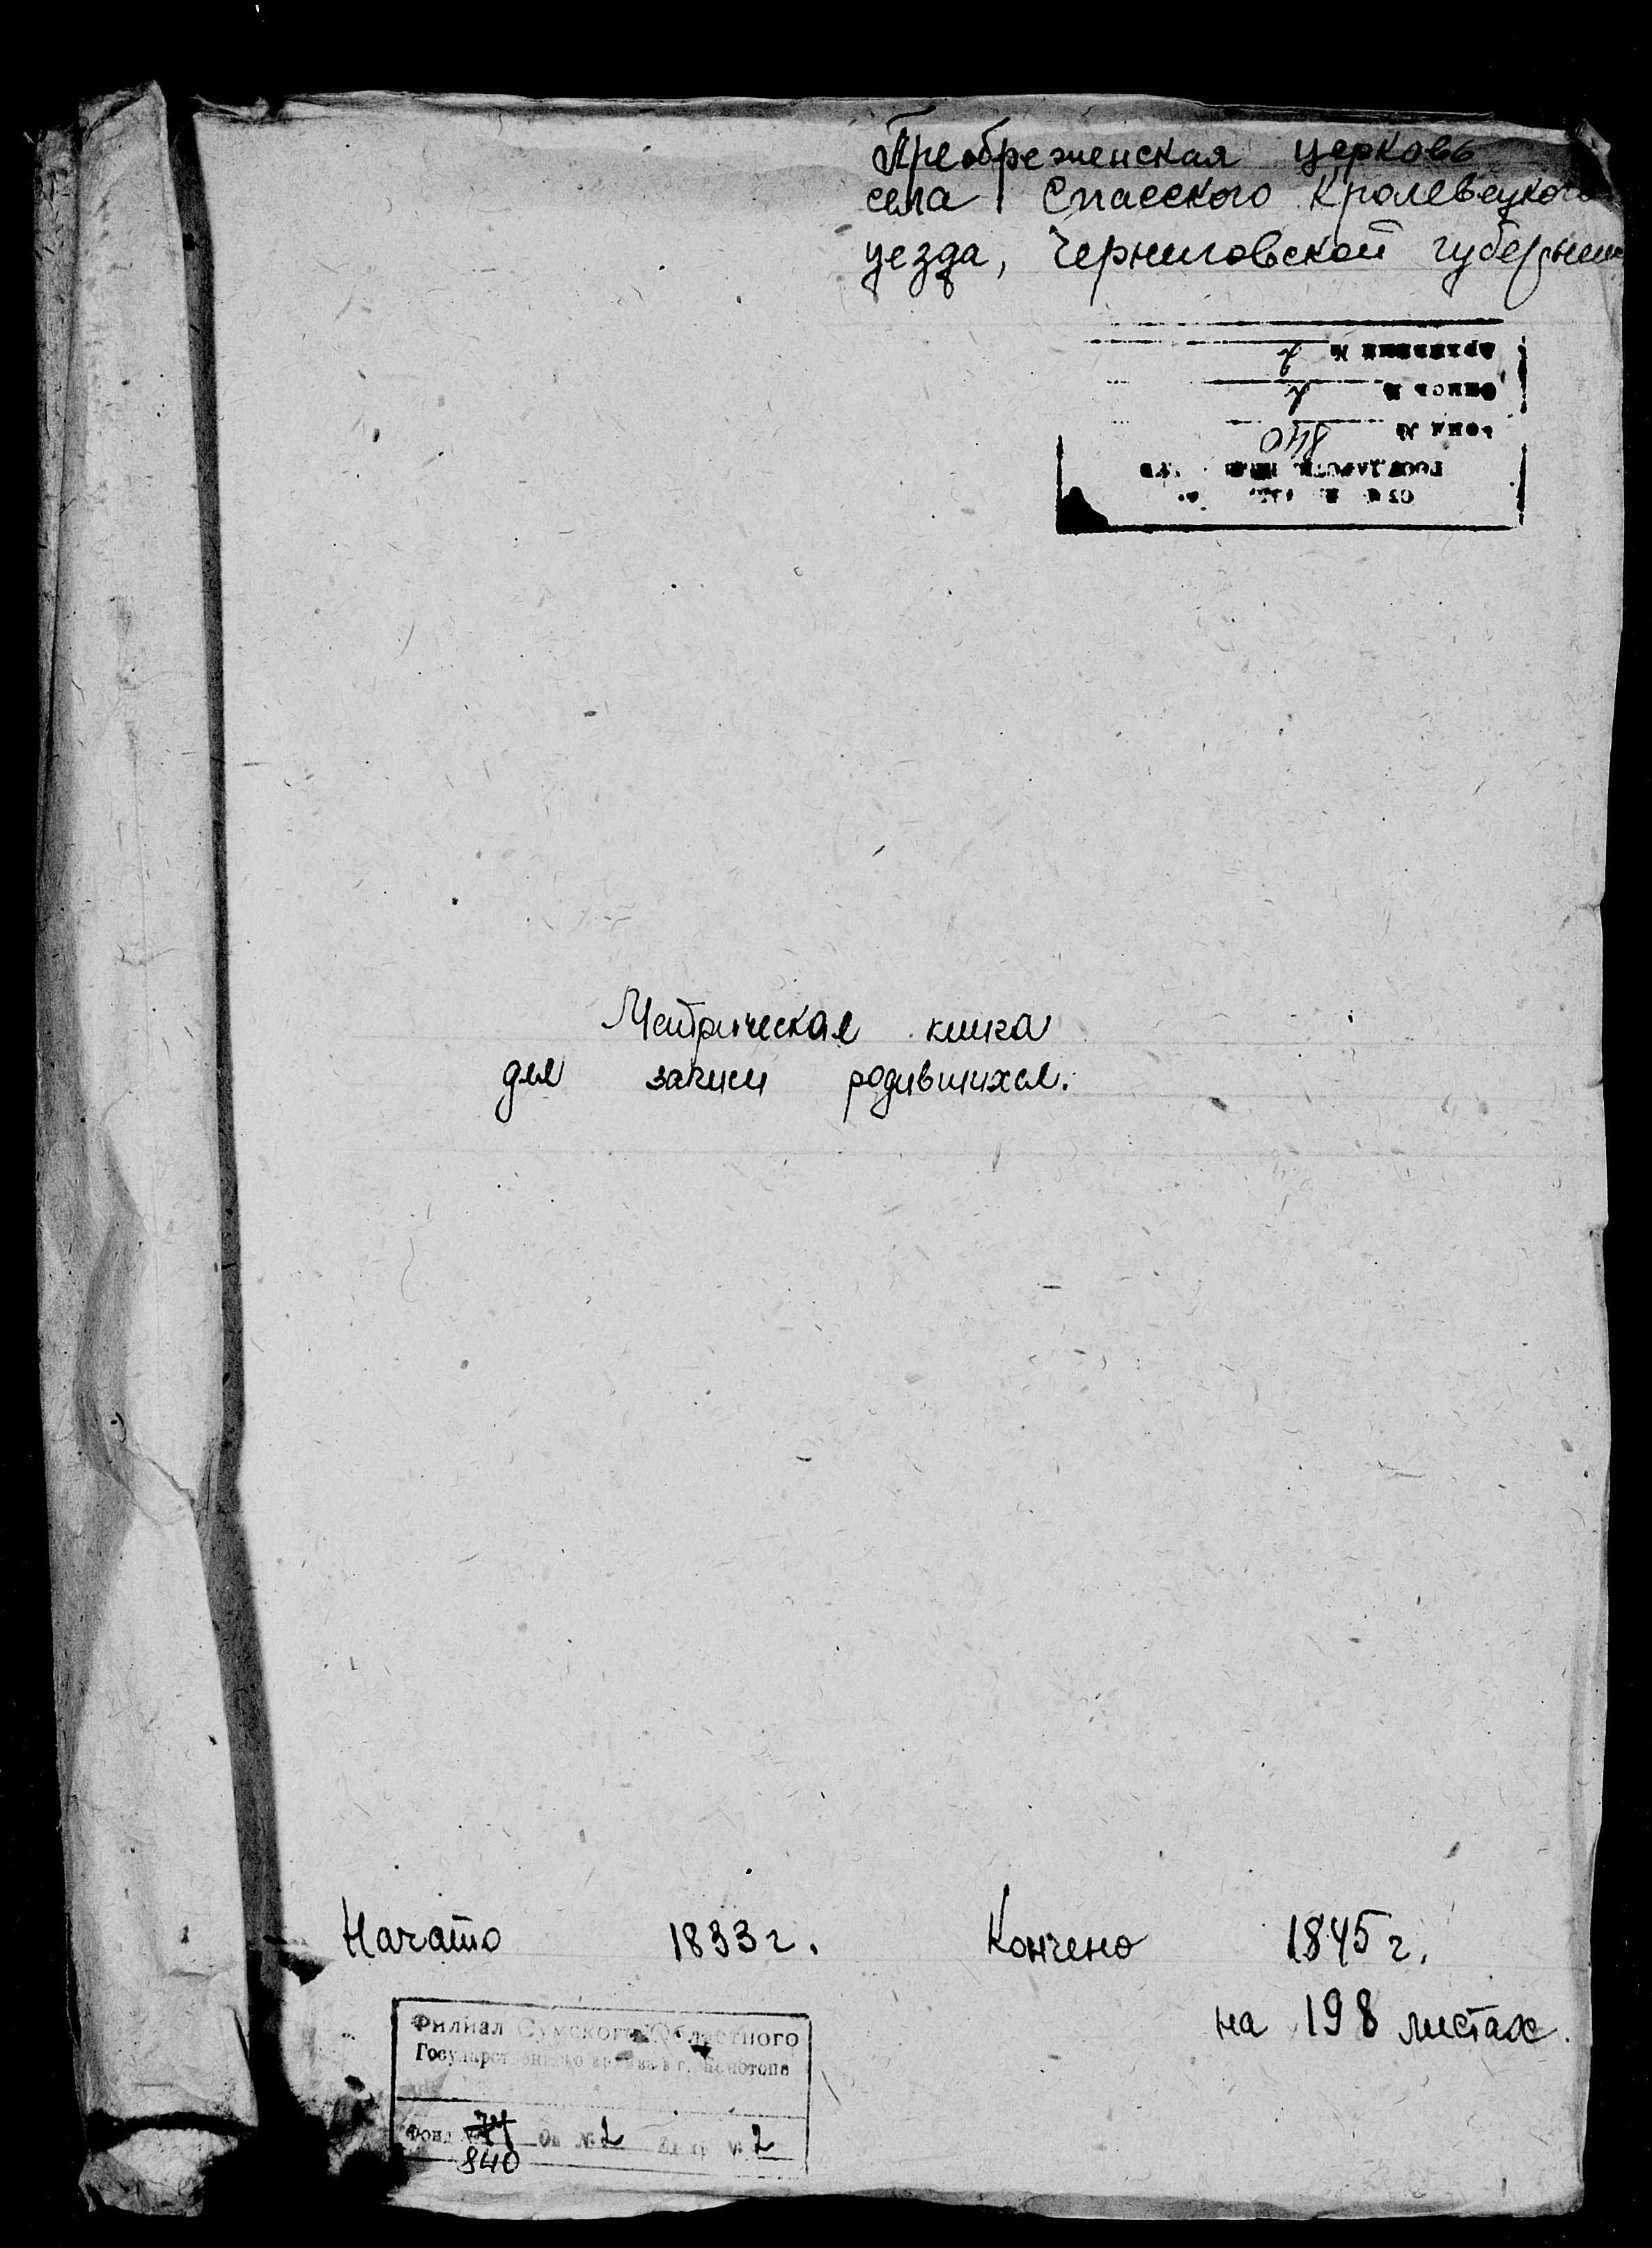 Преображенская церковь
села Спасского Кролевецкого
уезда, Черниговской губернии
Архивный №
Опись №
Фонд № 840
Метрическая книга
для записи родившихся.
Начато 1833 г. Кончено 1845 г.
на 198 листах.
Филиал Сумского Областного
Государственного архива в г. Конотопе
Фонд № Оп № 2 Ед. хр. № 2
840